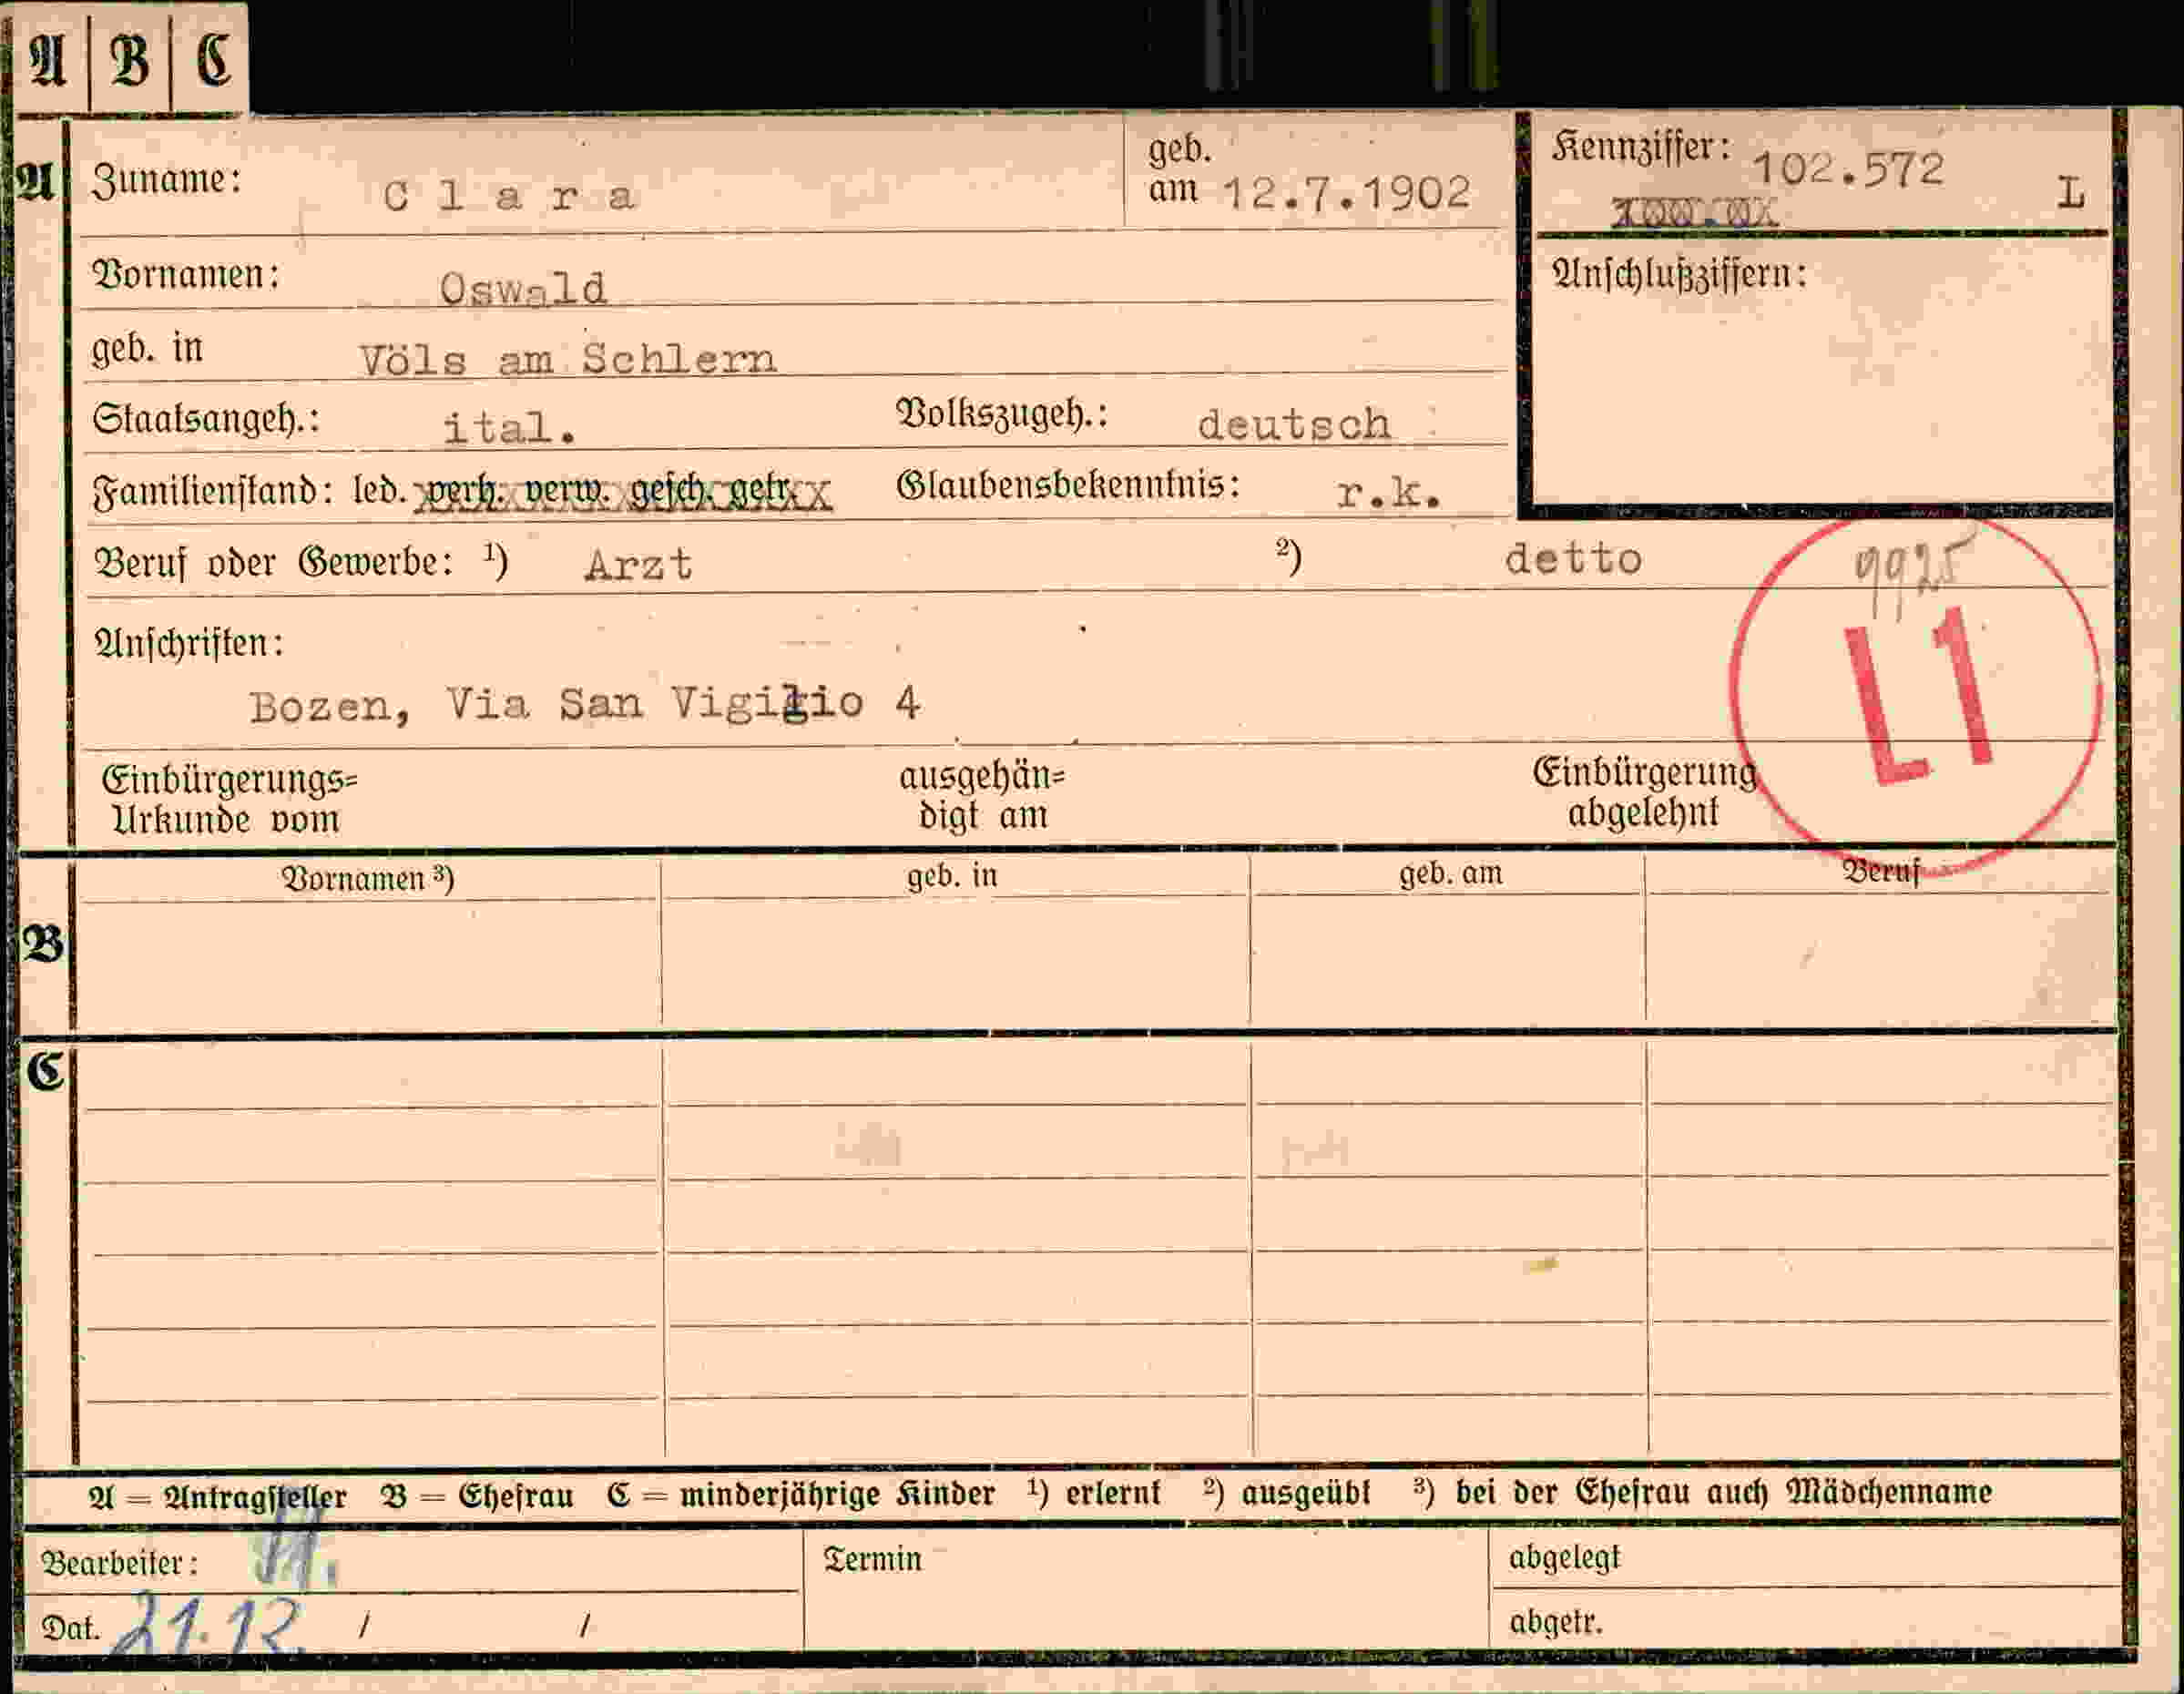 A B C
A Zuname: Clara geb. am 12.7.1902 Kennziffer: 102.572 L
Vornamen: Oswald Anschlußziffern:
geb. in Völs am Schlern
Staatsangeh.: ital. Volkszugeh.: deutsch
Familienstand: led. verh. verw. gesch. getr. Glaubensbekenntnis: r.k.
Beruf oder Gewerbe: ¹) Arzt ²) detto 9925
L1
Anschriften:
Bozen, Via San Vigilio 4
Einbürgerungs= ausgehän= Einbürgerung
Urkunde vom digt am abgelehnt
Vornamen ³) geb. in geb. am Beruf
B
C
A = Antragsteller B = Ehefrau C = minderjährige Kinder ¹) erlernt ²) ausgeübt ³) bei der Ehefrau auch Mädchenname
Bearbeiter: Termin abgelegt
Dat. 21.12. / / abgetr.